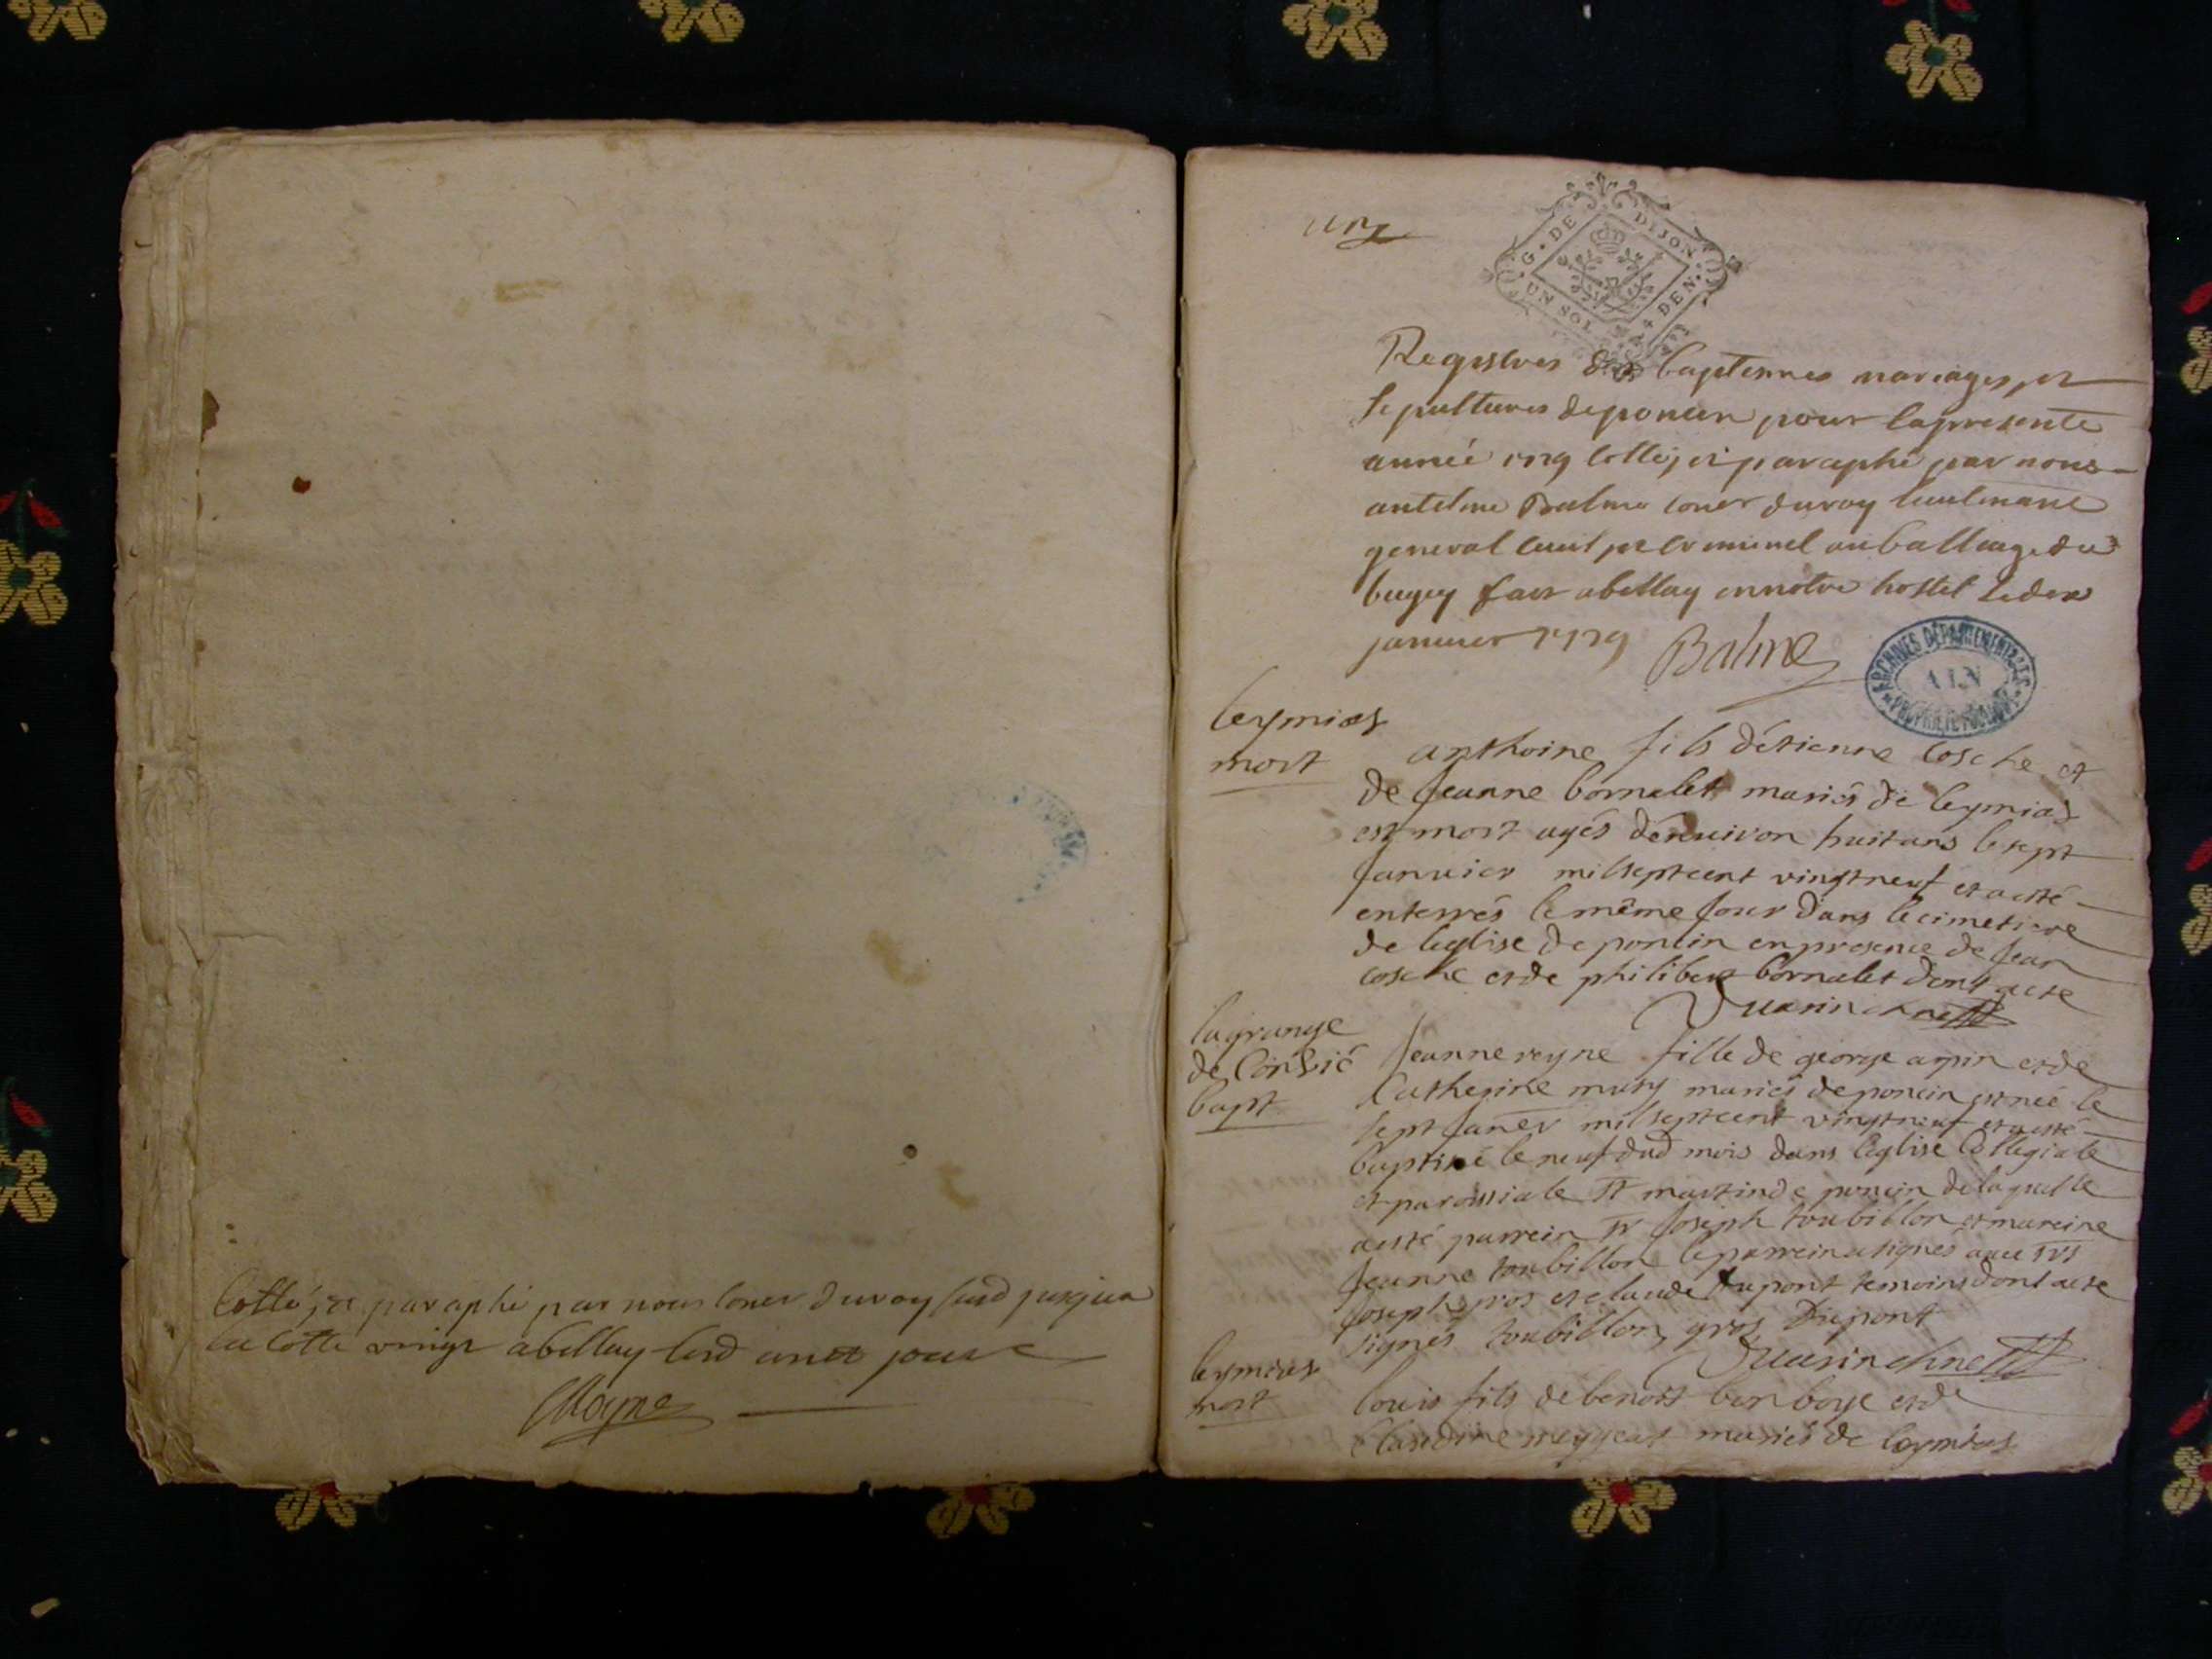 Cotté, et paraphé par nous coner du roy susd jusqua
la cotte vingt abellay lesd an et jour
unz
G. DE DIJON
UN SOL 4 DEN.
Registres des baptemes mariages, et
sepultures de poncin pour la presente
année 1729 cotté, et paraphé par nous
antelme Balme coner du roy lieutenant
general civil, et criminel au balliage du
bugey fait abellay en notre hostel le dix
janvier 1729 Balme
ARCHIVES DÉPARTEMENTALES
AIN
PROPRIÉTÉ PUBLIQUE
leymiat
mort
anthoine fils d'étienne cosche et
de Jeanne bornalet mariés de leymiat
est mort agés d'enuiron huit ans le sept
Januier mil sept cent vingt neuf et a esté
enterrés le même Jour dans le cimetiere
de leglise de poncin en presence de Jean
cosche et de philibert bornalet dont acte
Quarin chne
lagrange
de
bapt
Jeanne reyne fille de george arpin et de
Catherine mury mariés de poncin est née le
sept Janer mil sept cent vingt neuf et a esté
baptisé le neuf dud mois dans l'eglise Collegiale
et paroissiale St martin de poncin de laquelle
a esté parrein sr Joseph toubillon et mareine
Jeanne toubillon le parrein a signés auec srs
Joseph gros et claude Dupont temoins dont acte
signés toubillon, gros Dupont
Quarin chne
leymiat
mort
louis fils de benoist et de
claudine mariés de leymiat